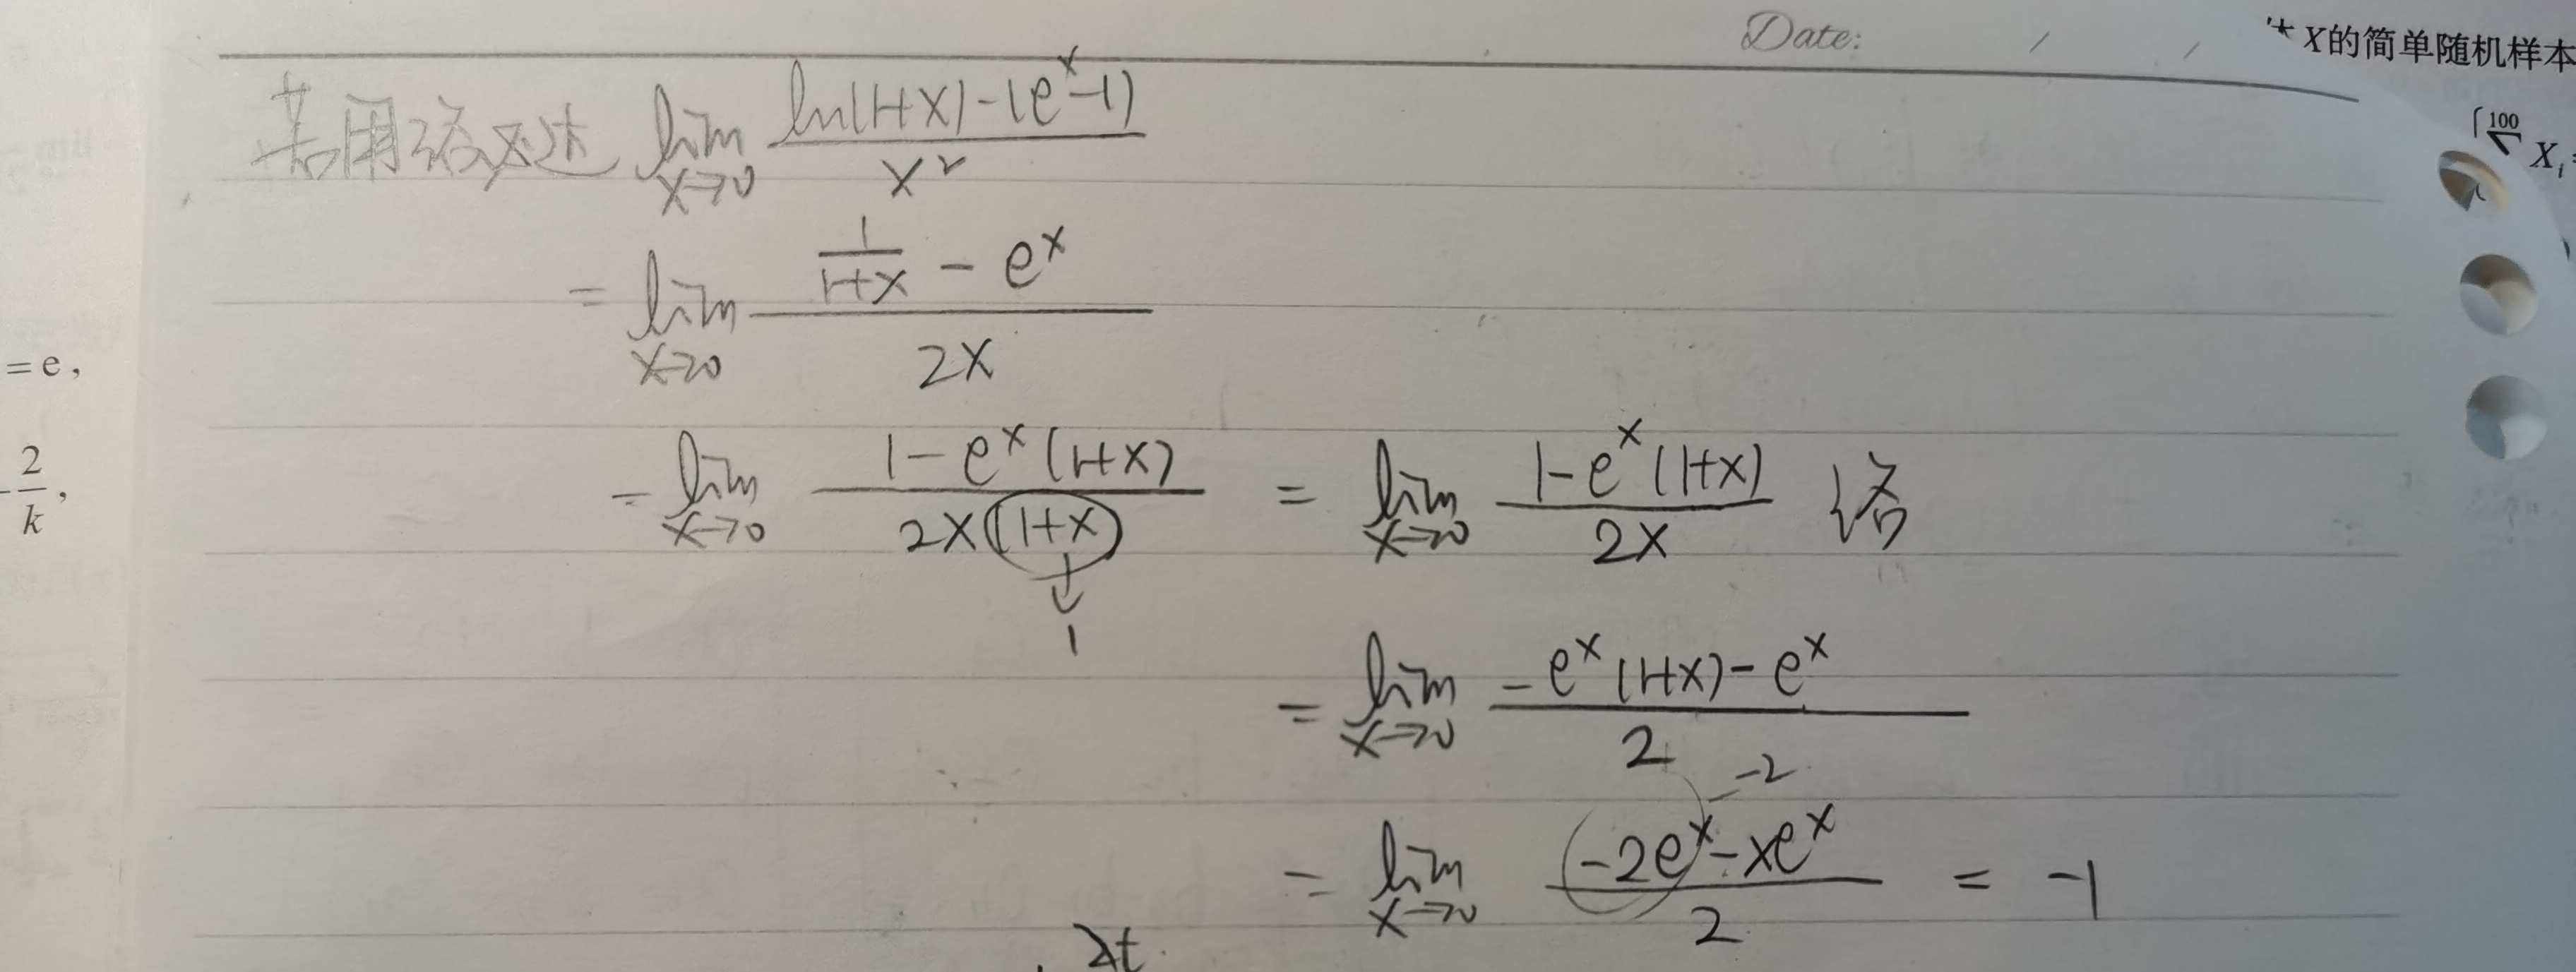 Date: / /
X的简单随机样本
100
∑ X_i
若用洛必达 lim_{x→0} \frac{ln(1+x)-(e^x-1)}{x^2}
= lim_{x→0} \frac{\frac{1}{1+x} - e^x}{2x}
= e,
= lim_{x→0} \frac{1-e^x(1+x)}{2x(1+x)} = lim_{x→0} \frac{1-e^x(1+x)}{2x} 洛
-\frac{2}{k},
↓
1
= lim_{x→0} \frac{-e^x(1+x)-e^x}{2}
-2
= lim_{x→0} \frac{-2e^x-xe^x}{2} = -1